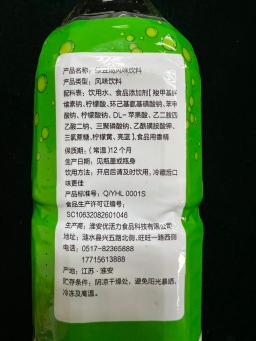 产品名称：绿豆馅风味饮料
产品类型：风味饮料
配料表：饮用水、食品添加剂【羧甲基纤
维素钠、柠檬酸、环己基氨基磺酸钠、苯甲
酸钠、柠檬酸钠、DL-苹果酸、乙二胺四
乙酸二钠、三聚磷酸钠、乙酰磺胺酸钾、
三氯蔗糖、柠檬黄、亮蓝】、食品用香精
保质期：(常温)12个月
生产日期：见瓶盖或瓶身
饮用方法：开启后请及时饮用，冷藏后口
味更佳
产品标准号：Q/YHL 0001S
食品生产许可证编号：
SC10632082601046
生产商：淮安优活力食品科技有限公司
地址：涟水县兴五路北侧、旺旺一路西侧
电话：0517-82365888
17715613888
产地：江苏·淮安
贮存条件：阴凉干燥处，避免阳光暴晒，
冷冻及高温。